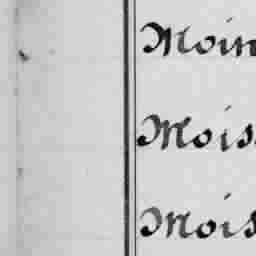 Moin
Mois
Mois